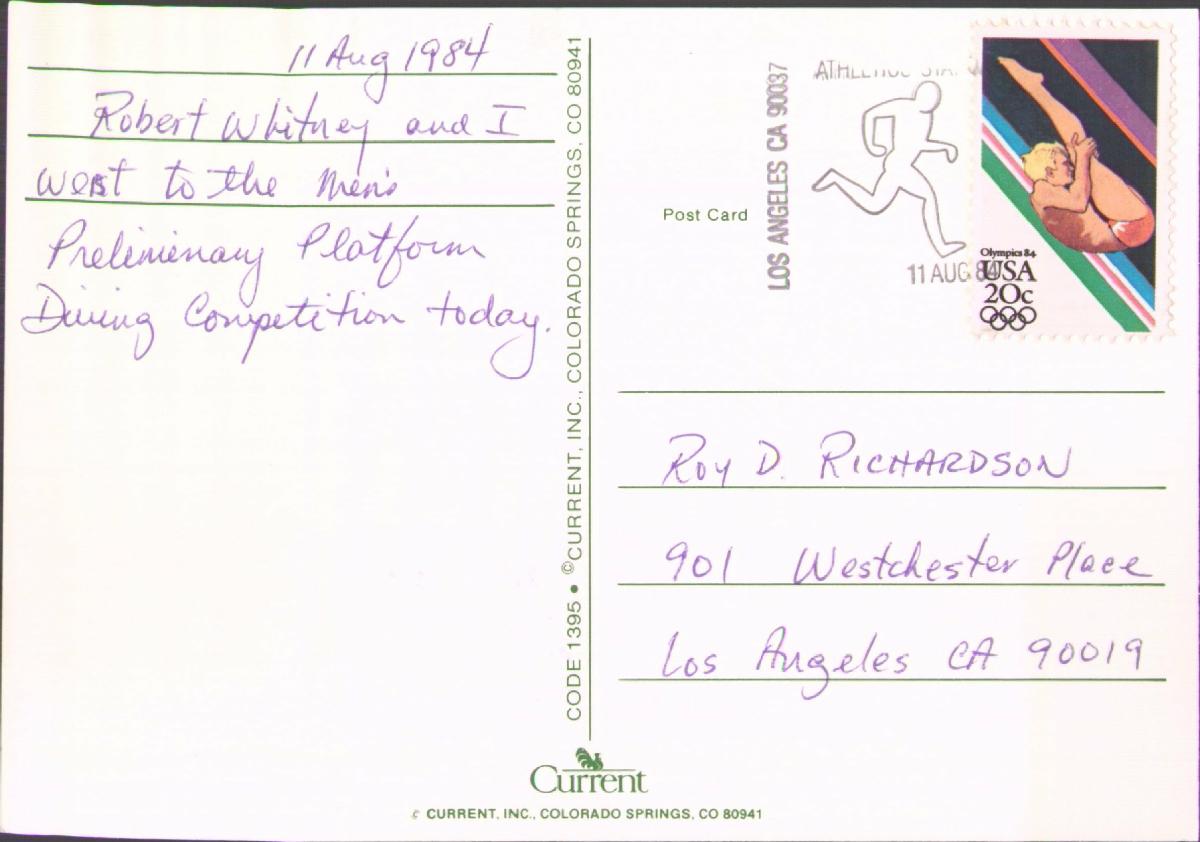 11 Aug 1984
Robert Whitney and I
went to the Men's
Preliminary Platform
Diving Competition today.
CODE 1395 • ©CURRENT, INC., COLORADO SPRINGS, CO 80941
Post Card
LOS ANGELES CA 90037
ATHLETICS STA.
11 AUG 84
Olympics 84
USA
20c
Roy D. RICHARDSON
901 Westchester Place
Los Angeles CA 90019
Current
© CURRENT, INC., COLORADO SPRINGS, CO 80941